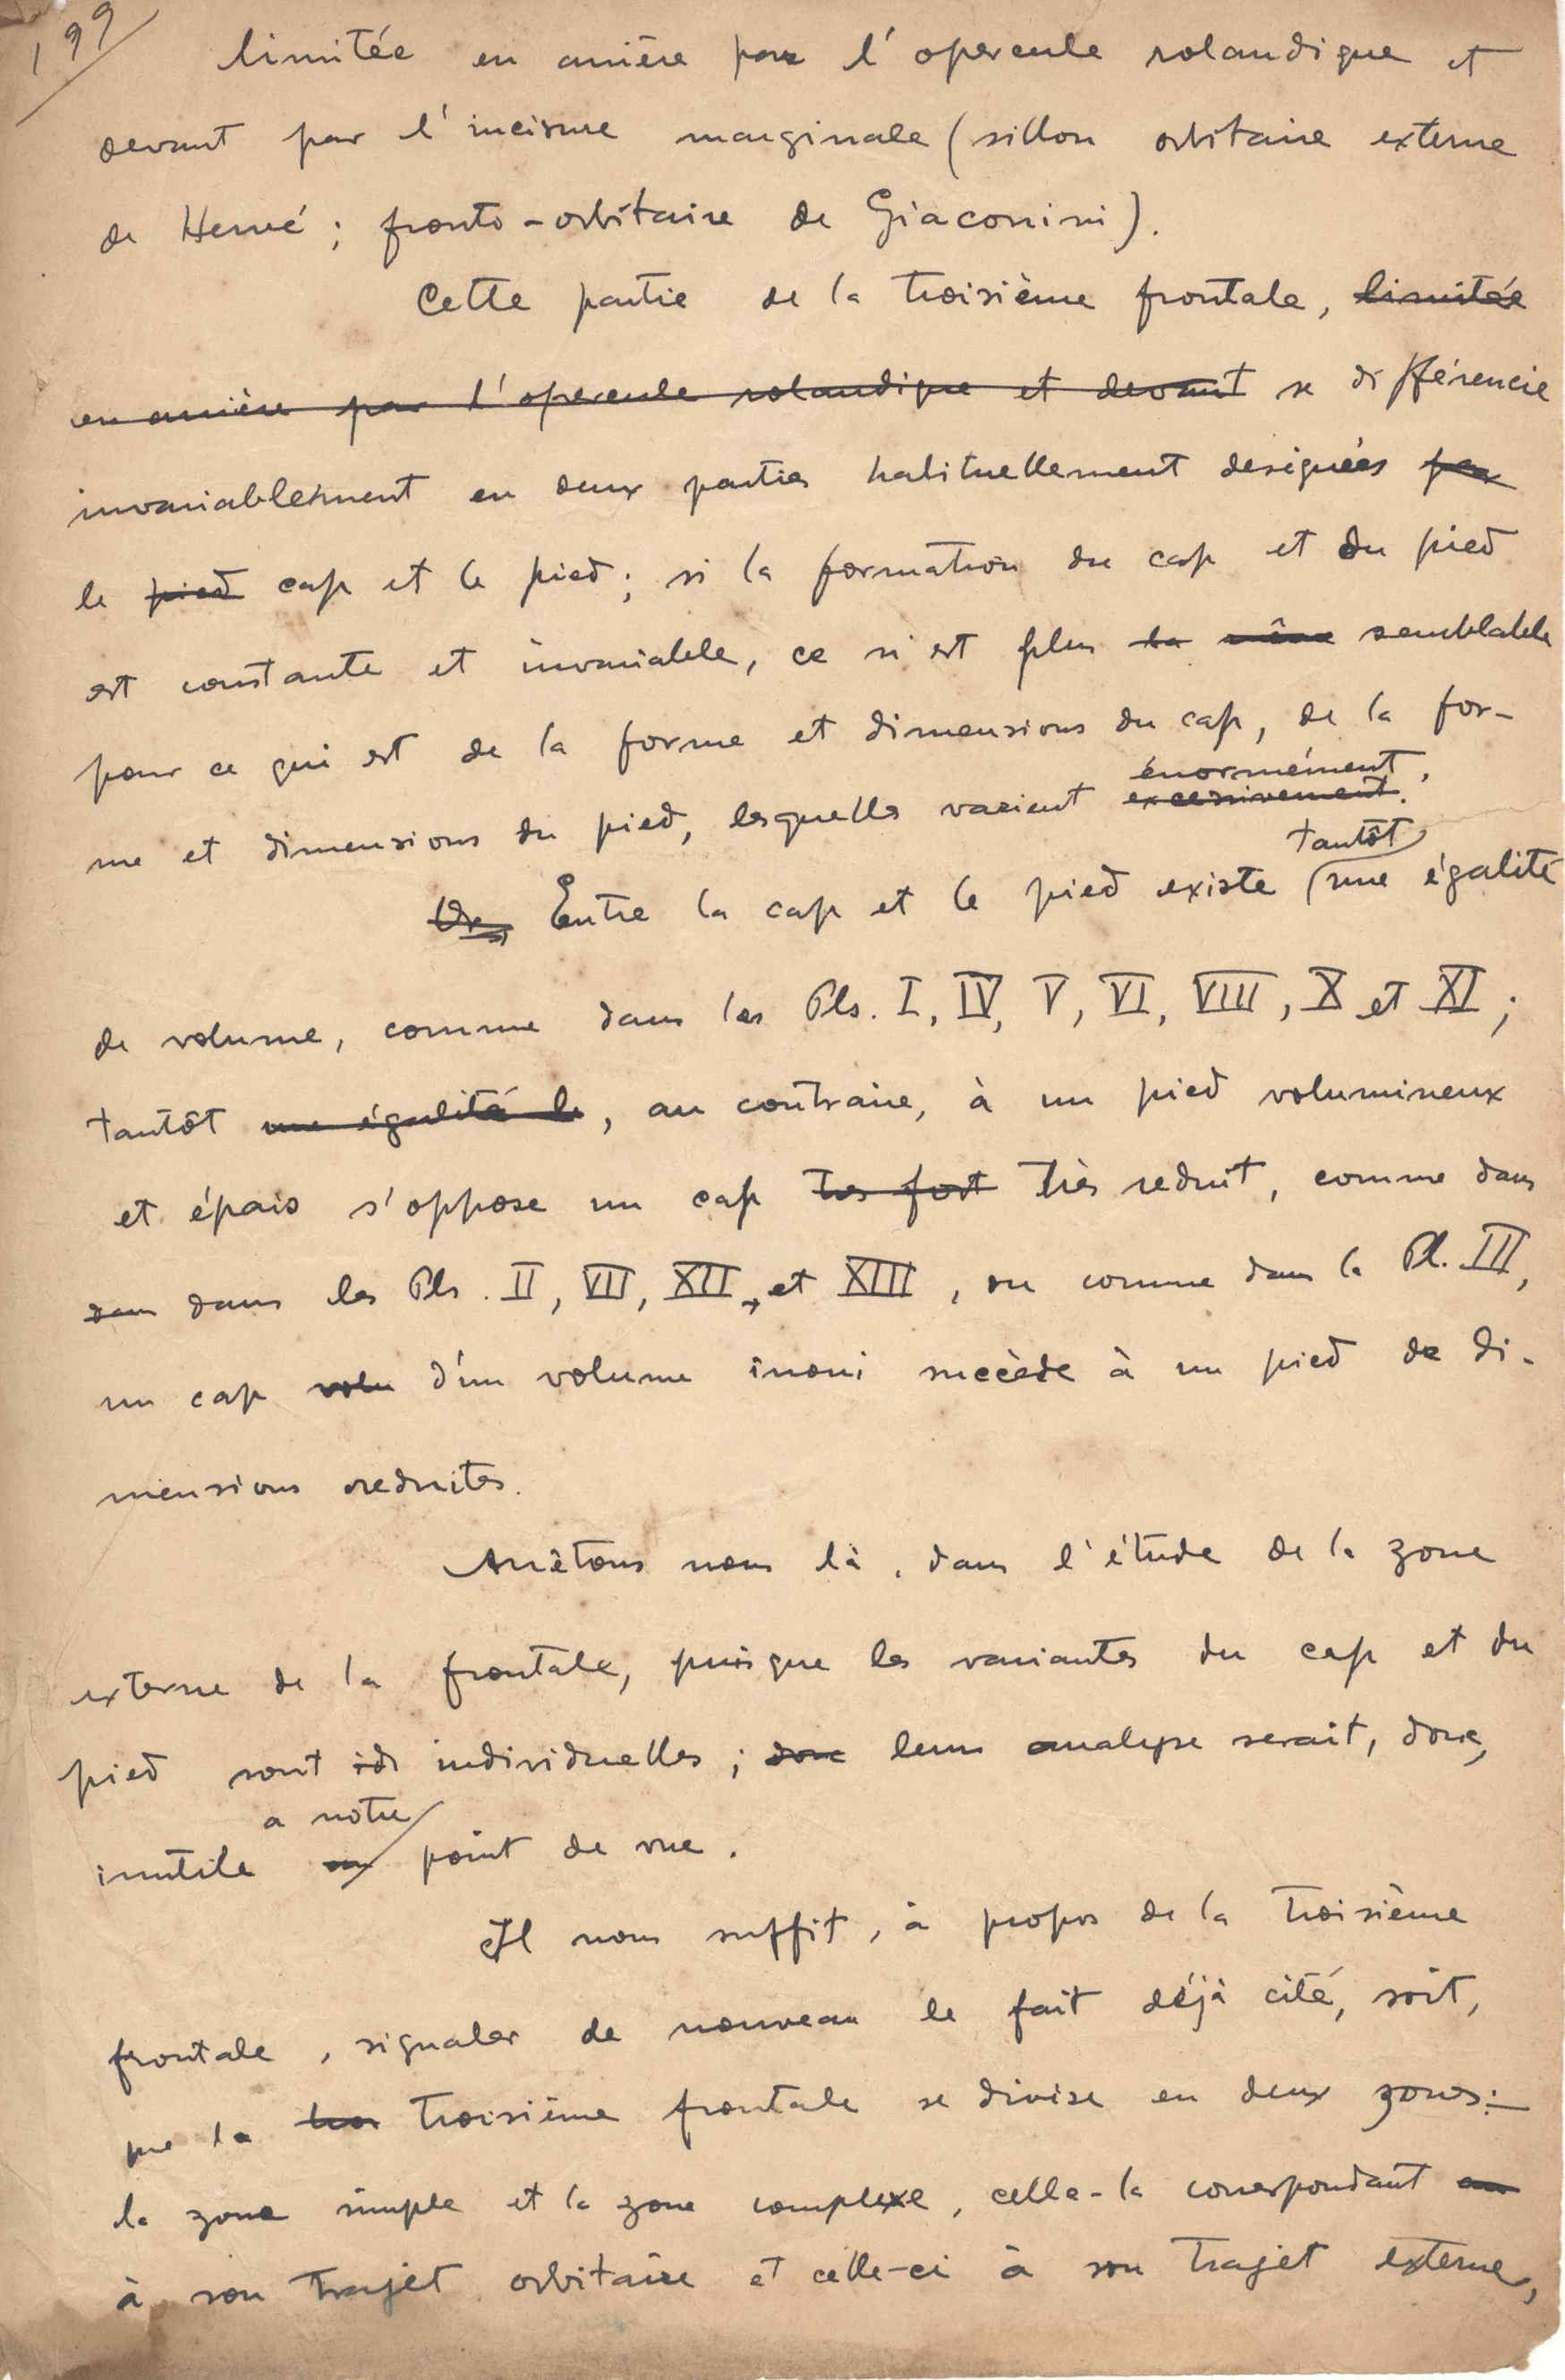 199
limitée en arrière par l'opercule rolandique et
devant par l'incisure marginale (sillon orbitaire externe
de Hervé ; fronto-orbitaire de Giacomini).
Cette partie de la troisième frontale, limitée
en arrière par l'opercule rolandique et devant se différencie
invariablement en deux parties habituellement designées par
le pied cap et le pied ; si la formation du cap et du pied
est constante et invariable, ce n'est plus la même semblable
pour ce qui est de la forme et dimensions du cap, de la for-
énormément,
me et dimensions du pied, lesquelles varient excessivement.
tantôt
Or, Entre la cap et le pied existe une égalité
de volume, comme dans les Pls. I, IV, V, VI, VIII, X et XI ;
tantôt une égalité de, au contraire, à un pied volumineux
et épais s'oppose un cap tres fort très reduit, comme dans
dans dans les Pls. II, VII, XII, et XIII, ou comme dans la Pl. III,
un cap volu d'un volume inoui succède à un pied de di-
mensions reduites.
Arrêtons nous là, dans l'étude de la zone
externe de la frontale, puisque les variantes du cap et du
pied sont ids individuelles ; donc leur analyse serait, donc,
a notre
inutile au point de vue.
Il nous suffit, à propos de la troisième
frontale, signaler de nouveau le fait déjà cité, soit,
que la troi troisième frontale se divise en deux zones :—
la zone simple et la zone complexe, celle-la correspondant au
à son trajet orbitaire et celle-ci à son trajet externe,